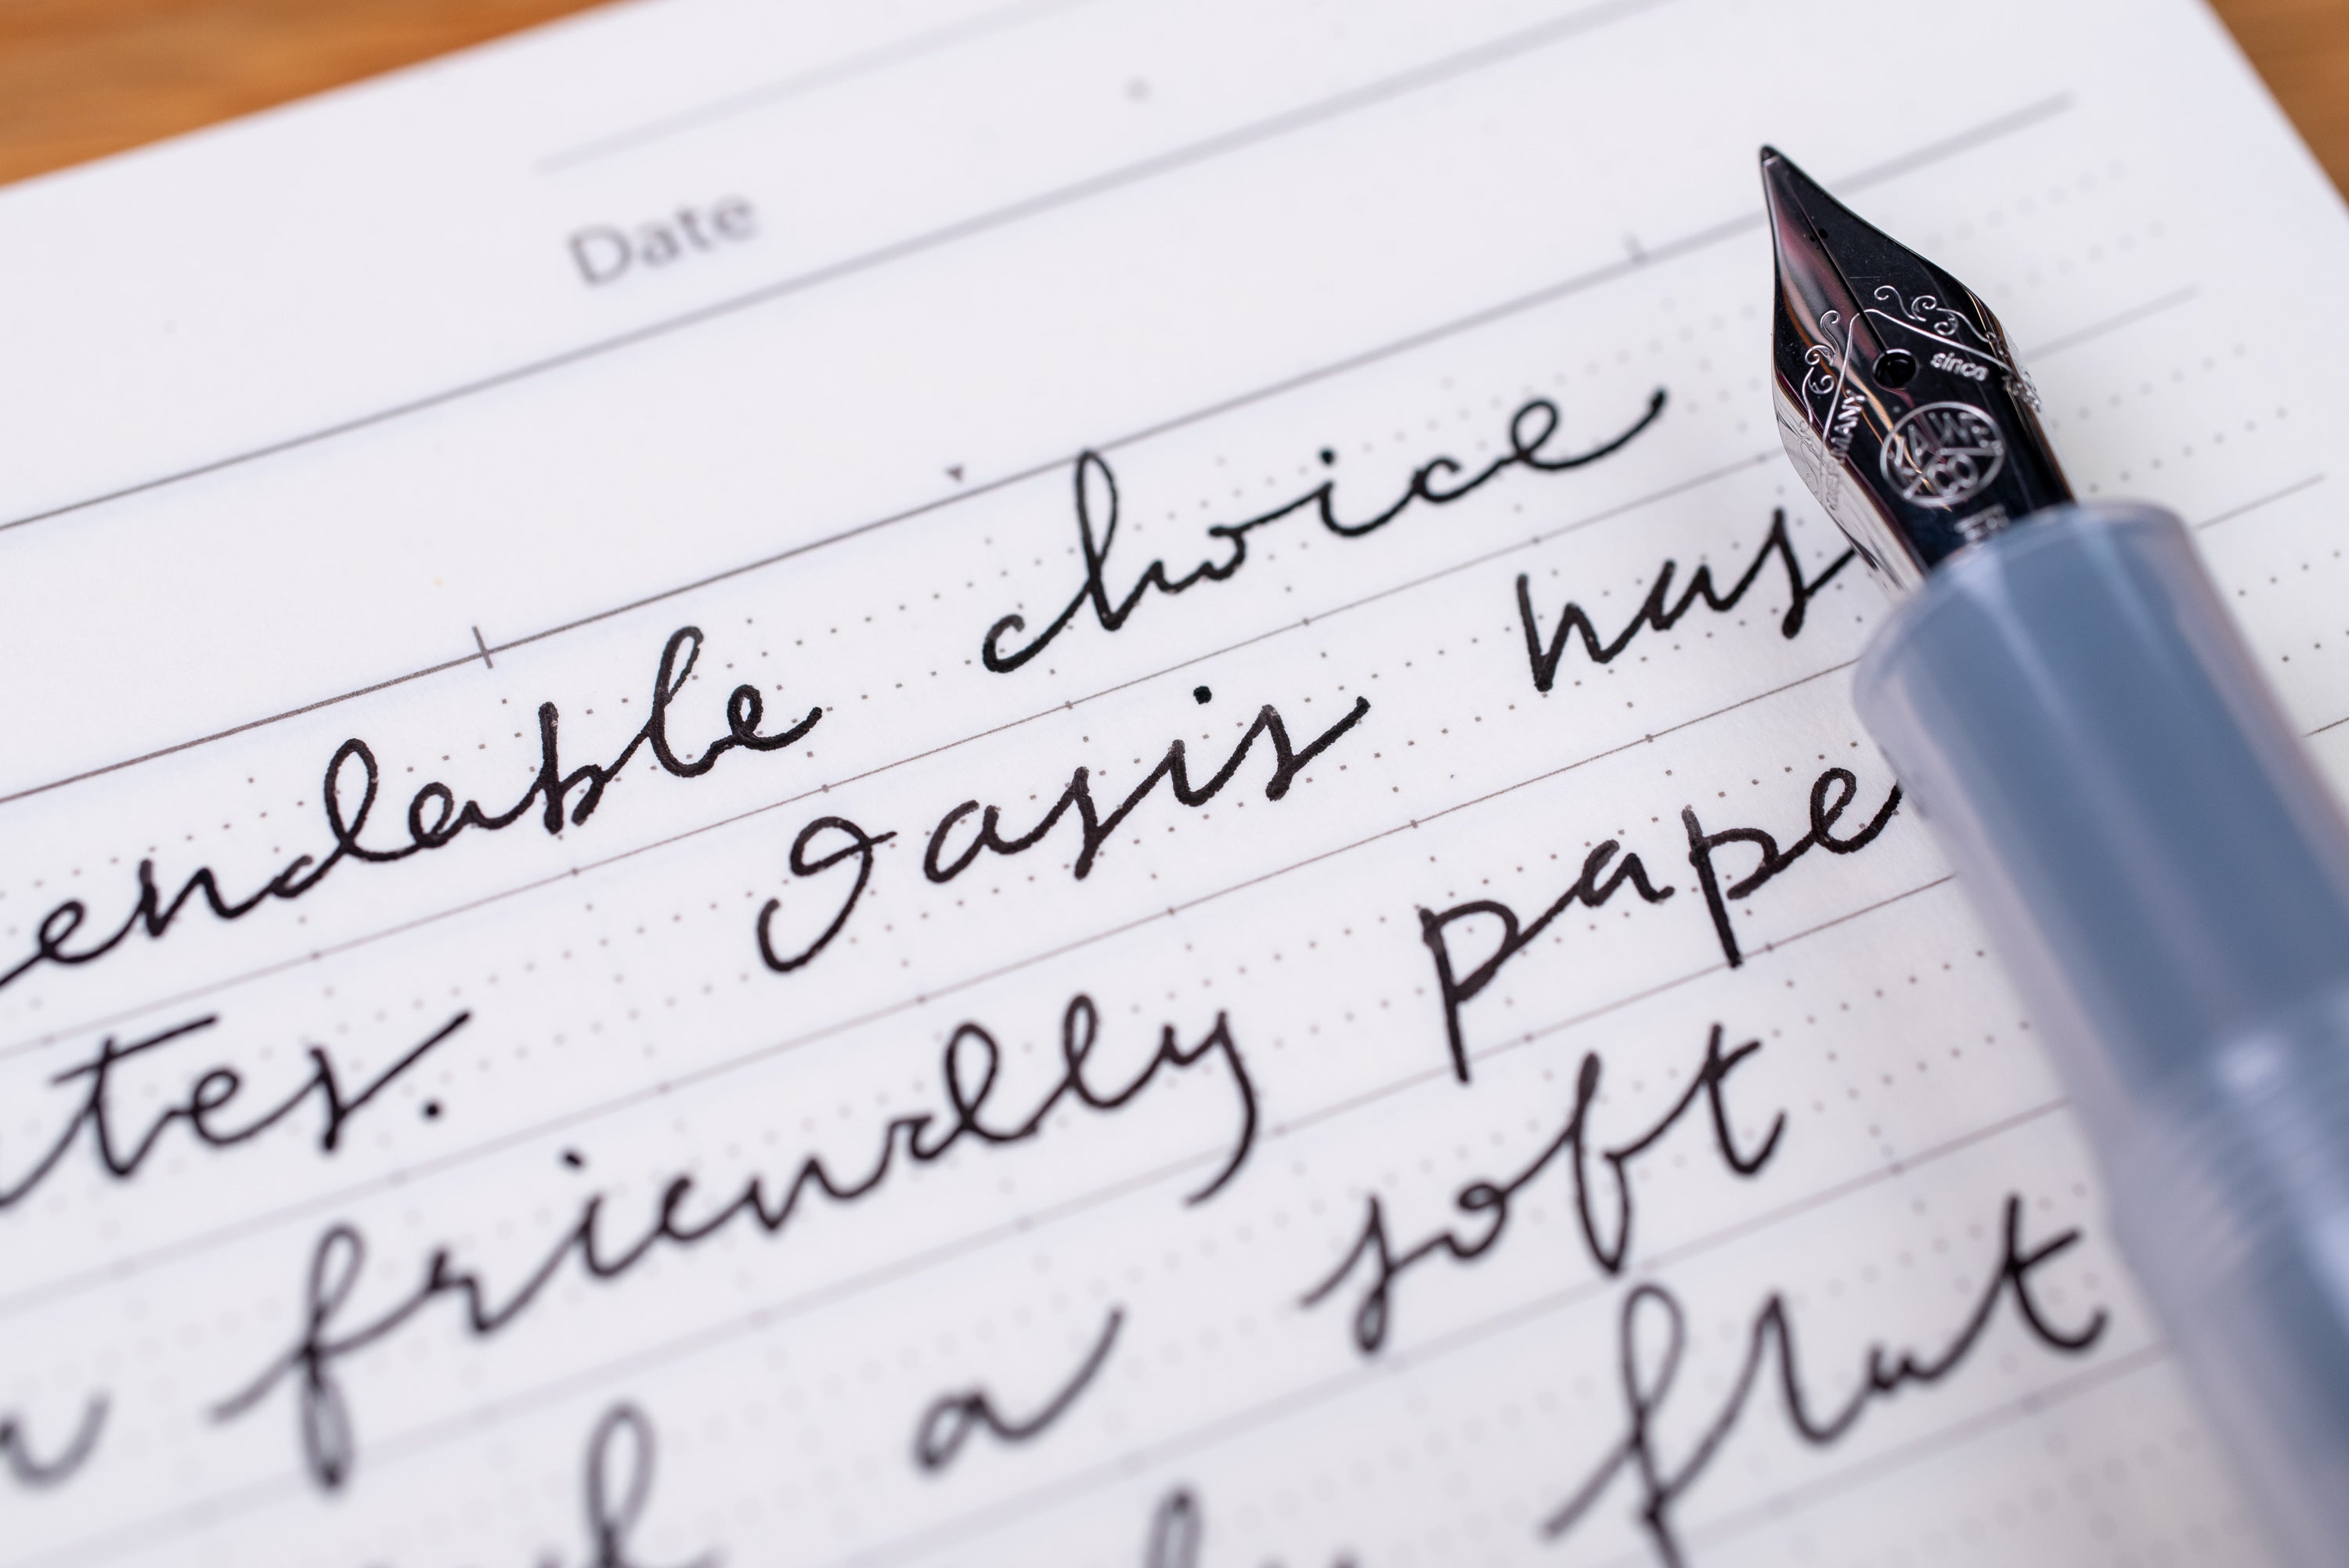 Date
endable choice
tes. Oasis has
friendly pape
a soft
flat
since
GERMANY
KAWE
CO